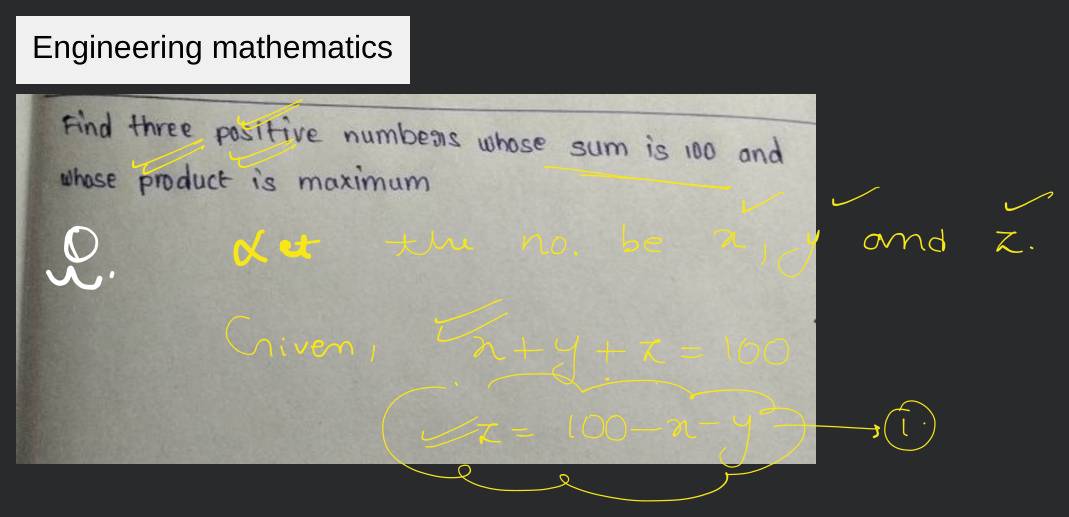 Engineering mathematics
Find three positive numbers whose sum is 100 and
whose product is maximum
Q.
Let the no. be x, y and z.
Given, x + y + z = 100
z = 100 - x - y → 1